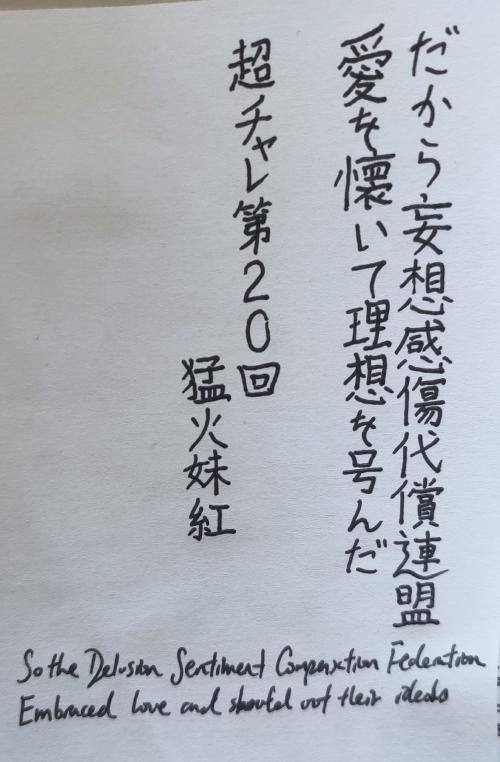 だから妄想感傷代償連盟
愛を懐いて理想を号んだ
超チャレ第20回
猛火妹紅
So the Delusion Sentiment Compensation Federation
Embraced love and should out their ideals